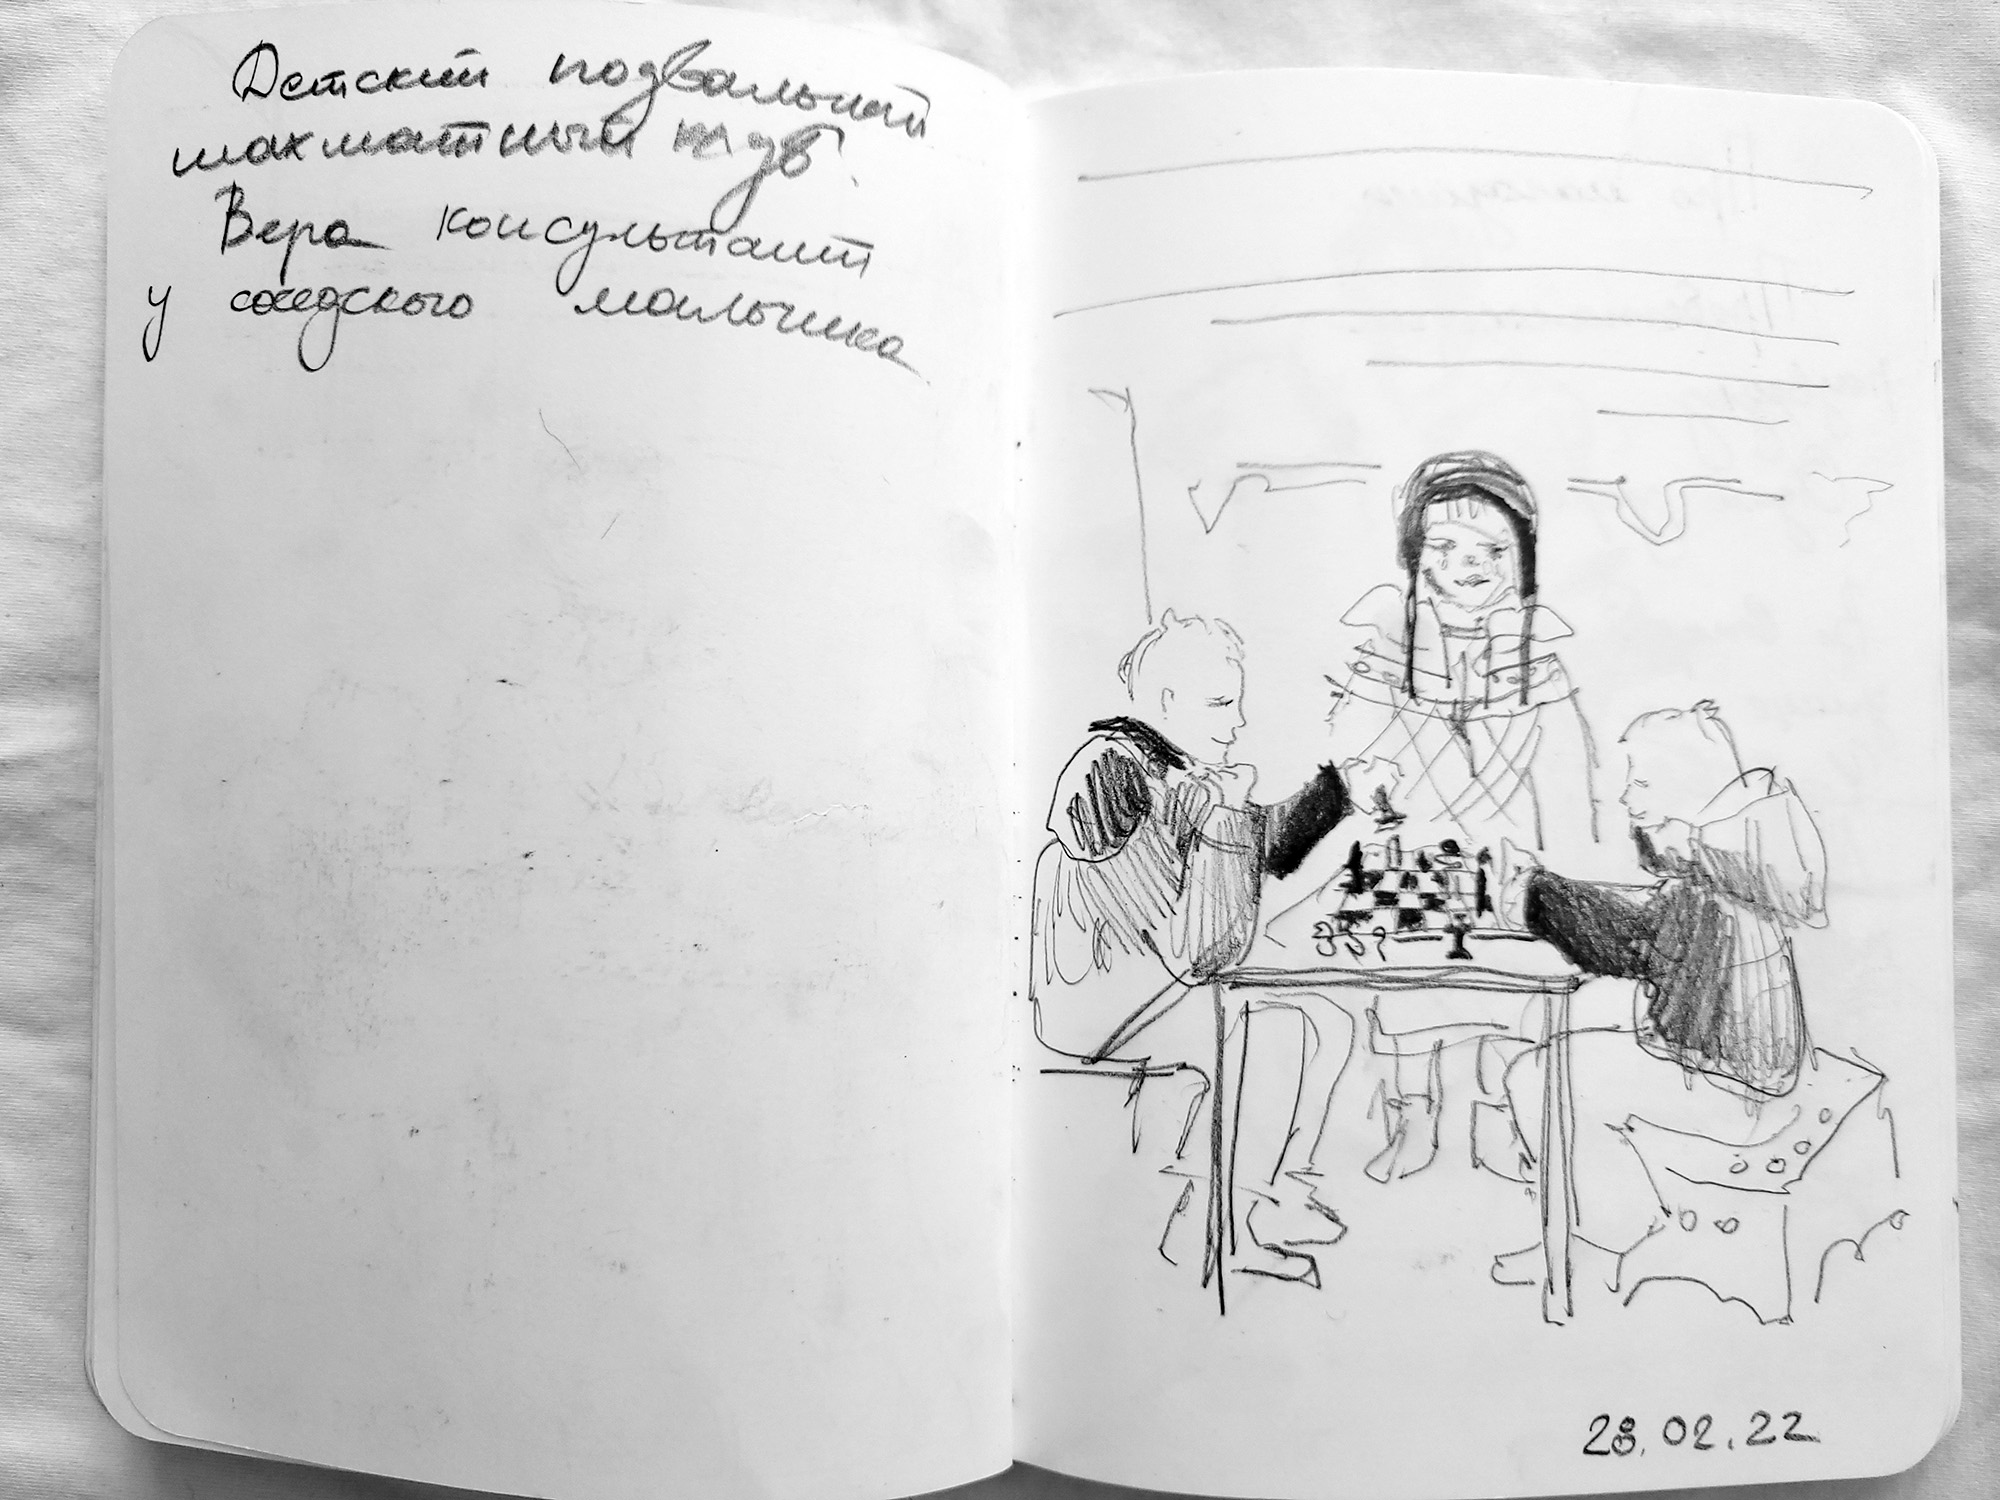 Детский подвальный
шахматный клуб.
Вера консультант
у соседского мальчика
28.02.22